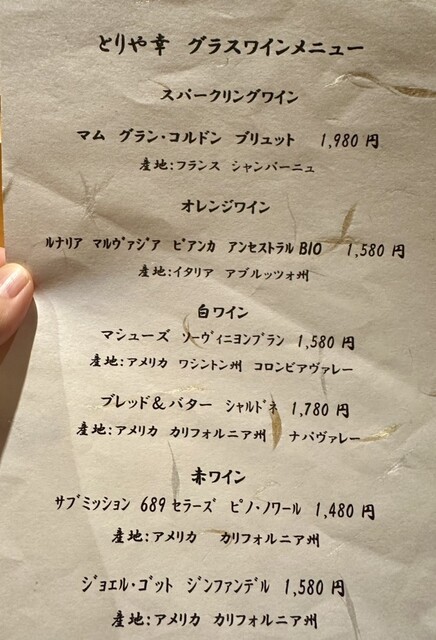 とりや幸 グラスワインメニュー
スパークリングワイン
マム グラン・コルドン ブリュット 1,980 円
産地:フランス シャンパーニュ
オレンジワイン
ルナリア マルヴァジア ビアンカ アンセストラル BIO 1,580 円
産地:イタリア アブルッツォ州
白ワイン
マシューズ ソーヴィニヨンブラン 1,580 円
産地:アメリカ ワシントン州 コロンビアヴァレー
ブレッド&バター シャルドネ 1,780 円
産地:アメリカ カリフォルニア州 ナパヴァレー
赤ワイン
サブミッション 689 セラーズ ピノ・ノワール 1,480 円
産地:アメリカ カリフォルニア州
ジョエル・ゴット ジンファンデル 1,580 円
産地:アメリカ カリフォルニア州